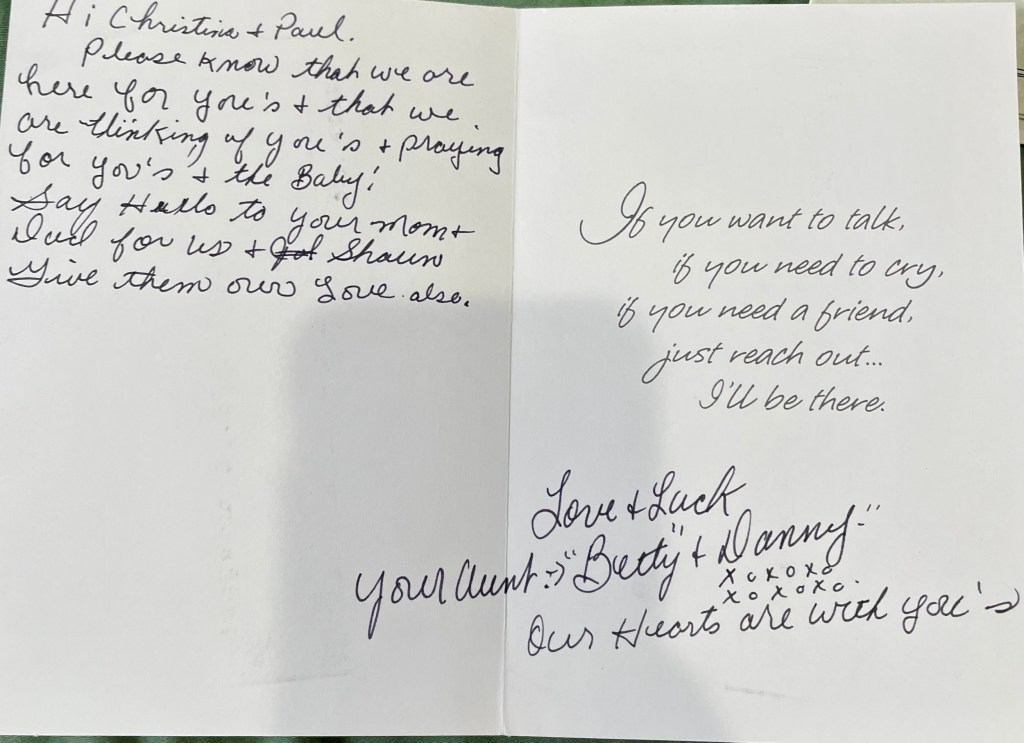 Hi Christina + Paul.
Please know that we are
here for you's + that we
are thinking of you's + praying
for you's + the Baby!
Say Hello to your mom +
Dad for us + Shaun
Give them our Love also.
If you want to talk,
if you need to cry,
if you need a friend,
just reach out...
I'll be there.
Love + Luck
Your Aunt :-) "Betty" + Danny."
xoxoxo
xoxoxo.
Our Hearts are with you's